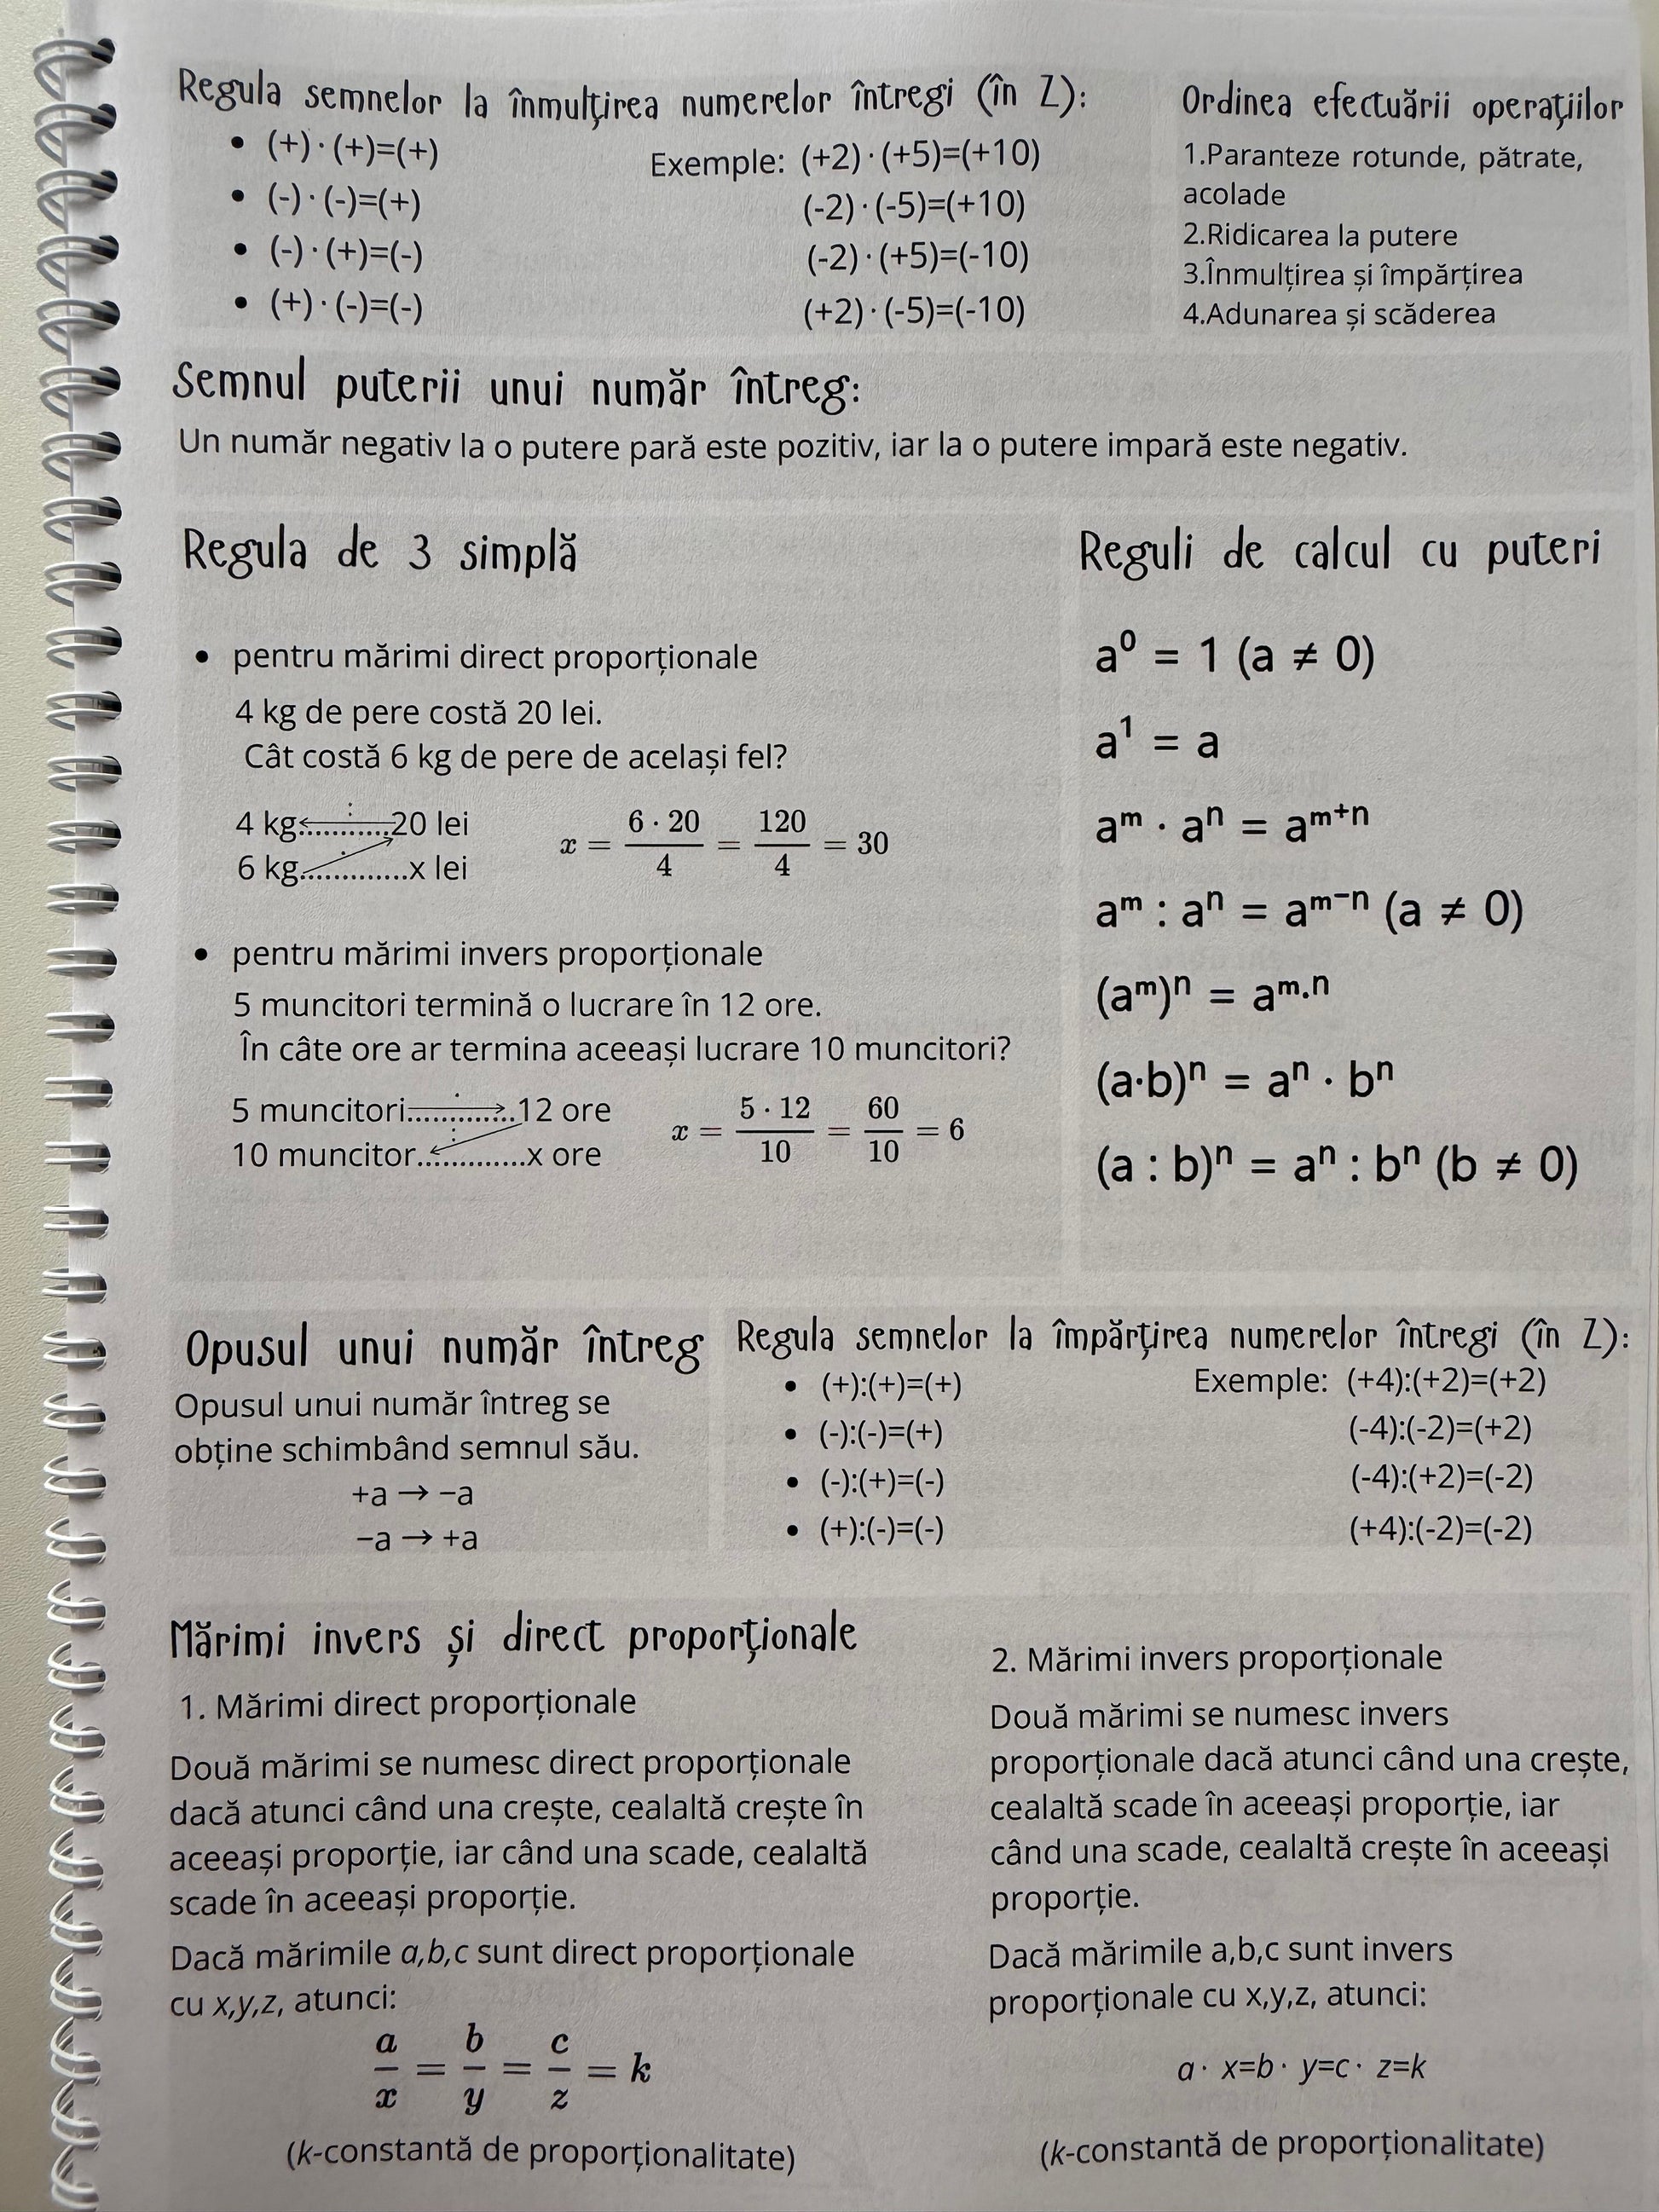 Regula semnelor la înmulțirea numerelor întregi (în Z):
• (+) · (+)=(+)
• (-) · (-)=(+)
• (-) · (+)=(-)
• (+) · (-)=(-)
Exemple: (+2) · (+5)=(+10)
(-2) · (-5)=(+10)
(-2) · (+5)=(-10)
(+2) · (-5)=(-10)
Ordinea efectuării operațiilor
1.Paranteze rotunde, pătrate,
acolade
2.Ridicarea la putere
3.Înmulțirea și împărțirea
4.Adunarea și scăderea
Semnul puterii unui număr întreg:
Un număr negativ la o putere pară este pozitiv, iar la o putere impară este negativ.
Regula de 3 simplă
• pentru mărimi direct proporționale
4 kg de pere costă 20 lei.
Cât costă 6 kg de pere de același fel?
4 kg...........20 lei
6 kg.............x lei
x = 6 · 20 / 4 = 120 / 4 = 30
• pentru mărimi invers proporționale
5 muncitori termină o lucrare în 12 ore.
În câte ore ar termina aceeași lucrare 10 muncitori?
5 muncitori.............12 ore
10 muncitor.............x ore
x = 5 · 12 / 10 = 60 / 10 = 6
Reguli de calcul cu puteri
a⁰ = 1 (a ≠ 0)
a¹ = a
aᵐ · aⁿ = aᵐ⁺ⁿ
aᵐ : aⁿ = aᵐ⁻ⁿ (a ≠ 0)
(aᵐ)ⁿ = aᵐ·ⁿ
(a·b)ⁿ = aⁿ · bⁿ
(a : b)ⁿ = aⁿ : bⁿ (b ≠ 0)
Opusul unui număr întreg
Opusul unui număr întreg se
obține schimbând semnul său.
+a → −a
−a → +a
Regula semnelor la împărțirea numerelor întregi (în Z):
• (+):(+)=(+)
• (-):(-)=(+)
• (-):(+)=(-)
• (+):(-)=(-)
Exemple: (+4):(+2)=(+2)
(-4):(-2)=(+2)
(-4):(+2)=(-2)
(+4):(-2)=(-2)
Mărimi invers și direct proporționale
1. Mărimi direct proporționale
Două mărimi se numesc direct proporționale
dacă atunci când una crește, cealaltă crește în
aceeași proporție, iar când una scade, cealaltă
scade în aceeași proporție.
Dacă mărimile a,b,c sunt direct proporționale
cu x,y,z, atunci:
a/x = b/y = c/z = k
(k-constantă de proporționalitate)
2. Mărimi invers proporționale
Două mărimi se numesc invers
proporționale dacă atunci când una crește,
cealaltă scade în aceeași proporție, iar
când una scade, cealaltă crește în aceeași
proporție.
Dacă mărimile a,b,c sunt invers
proporționale cu x,y,z, atunci:
a· x=b· y=c· z=k
(k-constantă de proporționalitate)